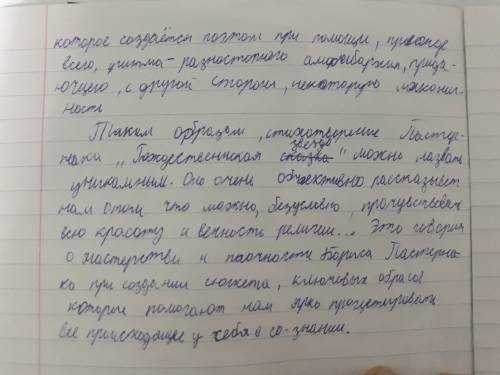 которое создаётся поэтом при помощи, прежде
всего, ритма - разностопного амфибрахия, прида-
ющего, с другой стороны, некоторую лаконич-
ность
Таким образом, стихотворение Пастер-
нака "Рождественская сказка звезда" можно назвать
уникальным. Оно очень объективно рассказывает
нам о том что можно, безусловно, прочувствовать
всю красоту и вечность религии... Это говорит
о мастерстве и Бориса Пастерна-
ка при создании сюжета, ключевых образов
которые помогают нам ярко
все происходящее у себя в со-знании.